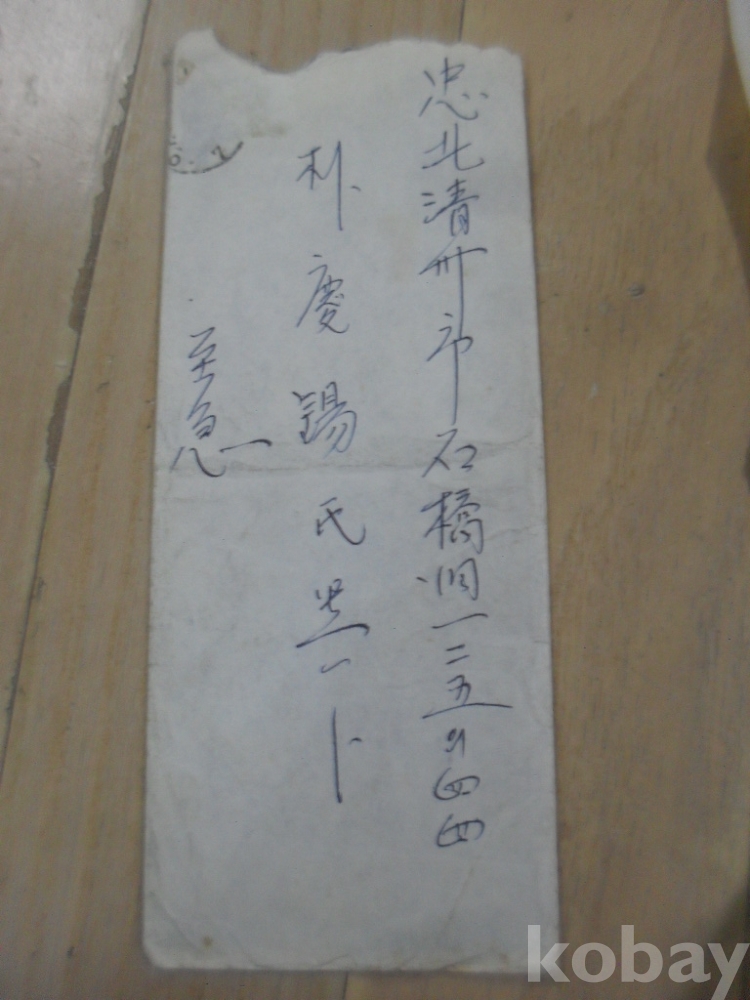 忠北清州市石橋洞一二五의四四
朴慶錫氏 下
至急
kobay